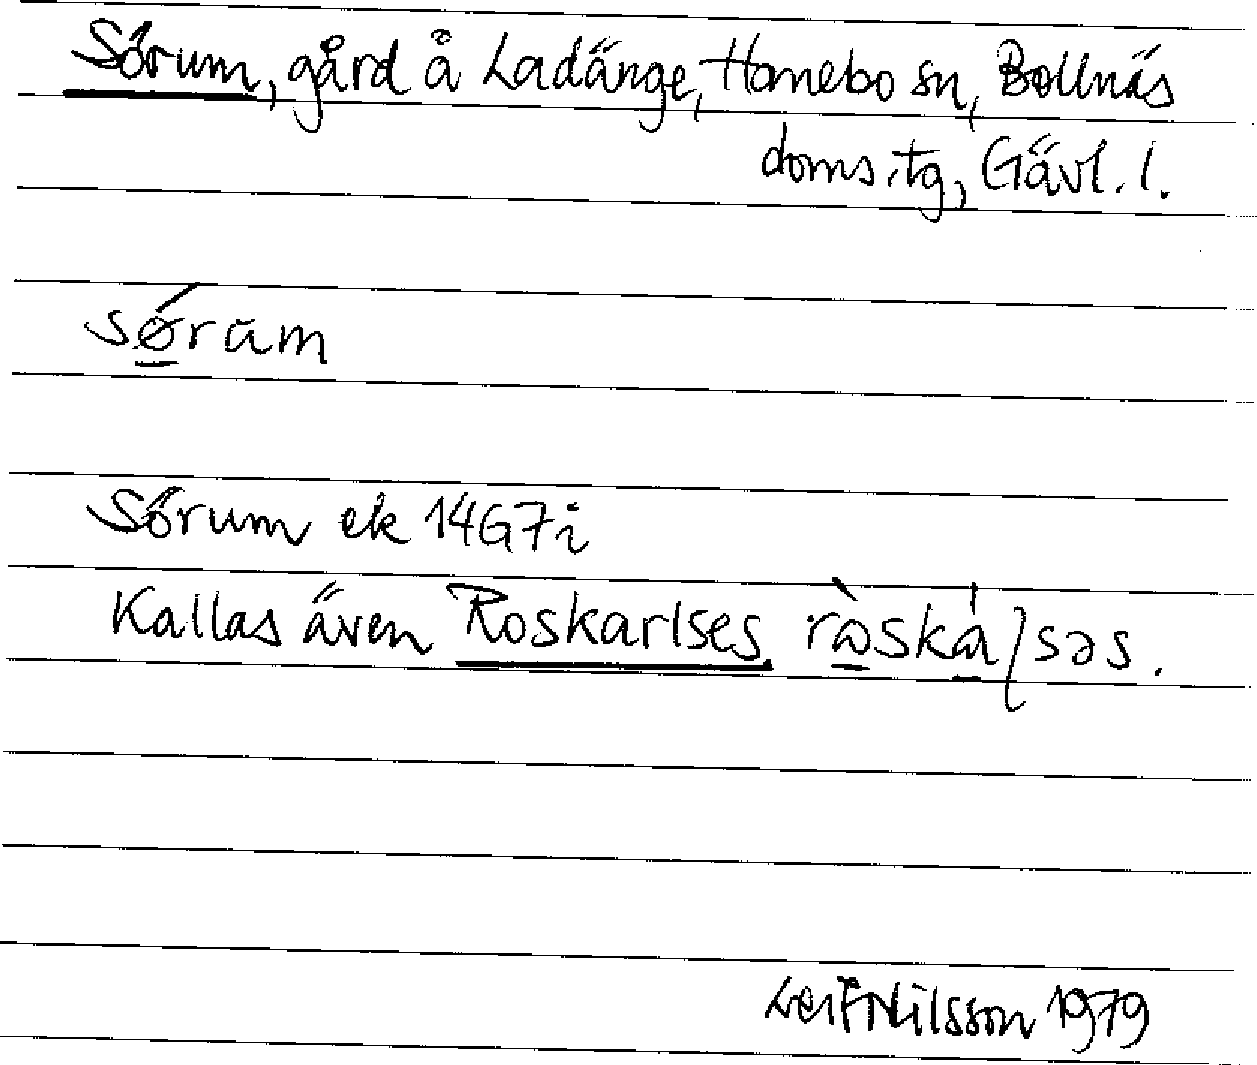 Sörum, gård å Ladänge, Hanebo sn, Bollnäs
doms.tg, Gävl. l.
sǿrum
Sörum ek 14G7i
Kallas även Roskarlses ròskàɭsəs.
Leif Nilsson 1979